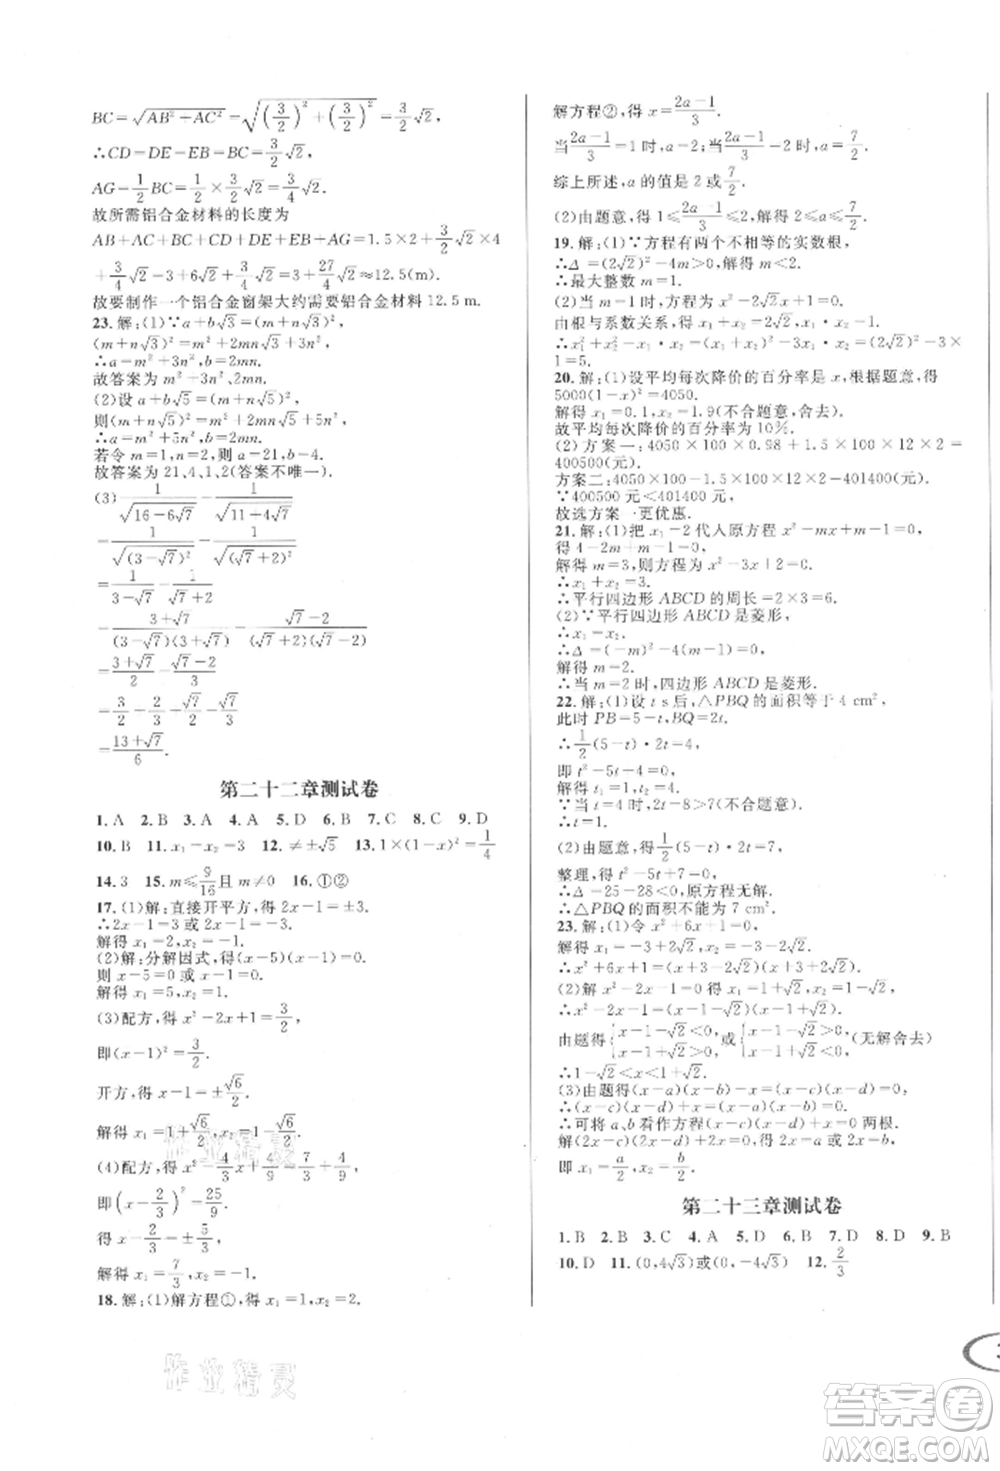 BC=√(AB²+AC²)=√((3/2)²+(3/2)²)=3/2√2.
∴CD=DE=EB=BC=3/2√2.
AG=1/2BC=1/2×3/2√2=3/4√2.
故所需铝合金材料的长度为
AB+AC+BC+CD+DE+EB+AG=1.5×2+3/2√2×4
+3/4√2=3+6√2+3/4√2=3+27/4√2≈12.5(m).
故要制作一个铝合金窗架大约需要铝合金材料 12.5 m.
23.解:(1)∵a+b√3=(m+n√3)²,
(m+n√3)²=m²+3n²+2mn√3,
∴a=m²+3n²,b=2mn.
故答案为 m²+3n²,2mn.
(2)设 a+b√5=(m+n√5)²,
则(m+n√5)²=m²+5n²+2mn√5.
∴a=m²+5n²,b=2mn.
若令 m=1,n=2,则 a=21,b=4.
故答案为 21,4,1,2(答案不唯一).
(3)1/√(16-6√7)-1/√(11+4√7)
=1/√((3-√7)²)-1/√((√7+2)²)
=1/(3-√7)-1/(√7+2)
=(3+√7)/((3-√7)(3+√7))-(√7-2)/((√7+2)(√7-2))
=(3+√7)/2-(√7-2)/3
=3/2+√7/2-√7/3+2/3
=(13+√7)/6.
第二十二章测试卷
1.A 2.B 3.A 4.A 5.D 6.B 7.C 8.C 9.D
10.B 11.x₁=x₂=3 12.≠±√5 13.1×(1-x)²=1/4
14.3 15.m≤9/16且 m≠0 16.①②
17.(1)解:直接开平方,得 2x-1=±3.
∴2x-1=3 或 2x-1=-3.
解得 x₁=2,x₂=-1.
(2)解:分解因式,得(x-5)(x-1)=0.
则 x-5=0 或 x-1=0.
解得 x₁=5,x₂=1.
(3)配方,得 x²-2x+1=1/2+1.
即(x-1)²=3/2.
开方,得 x-1=±√6/2.
解得 x₁=1+√6/2,x₂=1-√6/2.
(4)配方,得 x²-4/3x+4/9=7/3+4/9.
即(x-2/3)²=25/9.
开方,得 x-2/3=±5/3.
解得 x₁=7/3,x₂=-1.
18.解:(1)解方程①,得 x₁=1,x₂=2.
作业精灵
作业精灵
解方程②,得 x=(2a-1)/3.
当(2a-1)/3=1 时,a=2.当(2a-1)/3=2 时,a=7/2.
综上所述,a 的值是 2 或7/2.
(2)由题意,得 1≤(2a-1)/3≤2,解得 2≤a≤7/2.
19.解:(1)∵方程有两个不相等的实数根,
∴Δ=(2√2)²-4m>0,解得 m<2.
∴最大整数 m=1.
(2)当 m=1 时,原方程为 x²-2√2x+1=0,
由根与系数关系,得 x₁+x₂=2√2,x₁·x₂=1.
∴x₁²+x₂²-x₁x₂=(x₁+x₂)²-3x₁x₂=(2√2)²-3×
1=5.
20.解:(1)设平均每次降价的百分率是 x,根据题意,得
5000(1-x)²=4050.
解得 x₁=0.1,x₂=1.9(不合题意,舍去).
故平均每次降价的百分率为 10%.
(2)方案一:4050×100×0.98+1.5×100×12×2=
400500(元).
方案二:4050×100-1.5×100×12×2=401400(元).
∵400500 元<401400 元,
故选方案一更优惠.
21.解:(1)把 x₁=2 代入原方程 x²-mx+m-1=0,
得 4-2m+m-1=0.
解得 m=3,原方程为 x²-3x+2=0.
∴x₁+x₂=3.
∴平行四边形 ABCD 的周长=2×3=6.
(2)∵平行四边形 ABCD 是菱形,
∴x₁=x₂.
∴Δ=(-m)²-4(m-1)=0.
解得 m=2.
∴当 m=2 时,四边形 ABCD 是菱形.
22.解:(1)设 t s 后,△PBQ 的面积等于 4 cm²,
此时 PB=5-t,BQ=2t.
∴1/2(5-t)·2t=4.
即 t²-5t+4=0.
解得 t₁=1,t₂=4.
∵当 t=4 时,2t=8>7(不合题意).
∴t=1.
(2)由题意,得1/2(5-t)·2t=7,
整理,得 t²-5t+7=0.
∴Δ=25-28<0,原方程无解.
∴△PBQ 的面积不能为 7 cm².
23.解:(1)令 x²+6x+1=0,
解得 x₁=-3+2√2,x₂=-3-2√2.
∴x²+6x+1=(x+3-2√2)(x+3+2√2).
(2)解 x²-2x-1=0 得 x=1+√2或 x=1-√2,
∴x²-2x-1=(x-1-√2)(x-1+√2)<0.
由题得{x-1-√2<0,x-1+√2>0或{x-1-√2>0,x-1+√2<0.(无解舍去)
∴1-√2<x<1+√2.
(3)由题得(x-a)(x-b)-x=(x-c)(x-d).
∴(x-c)(x-d)+x=(x-a)(x-b).
∴可将 a,b 看作方程(x-c)(x-d)+x=0 两根.
解(2x-c)(2x-d)+2x=0,得 2x=a 或 2x=b.
即 x₁=a/2,x₂=b/2.
第二十三章测试卷
1.B 2.B 3.C 4.A 5.D 6.B 7.D 8.D 9.B
10.D 11.(0,4√3)或(0,-4√3) 12.2/3
答案圈
MXQE.COM